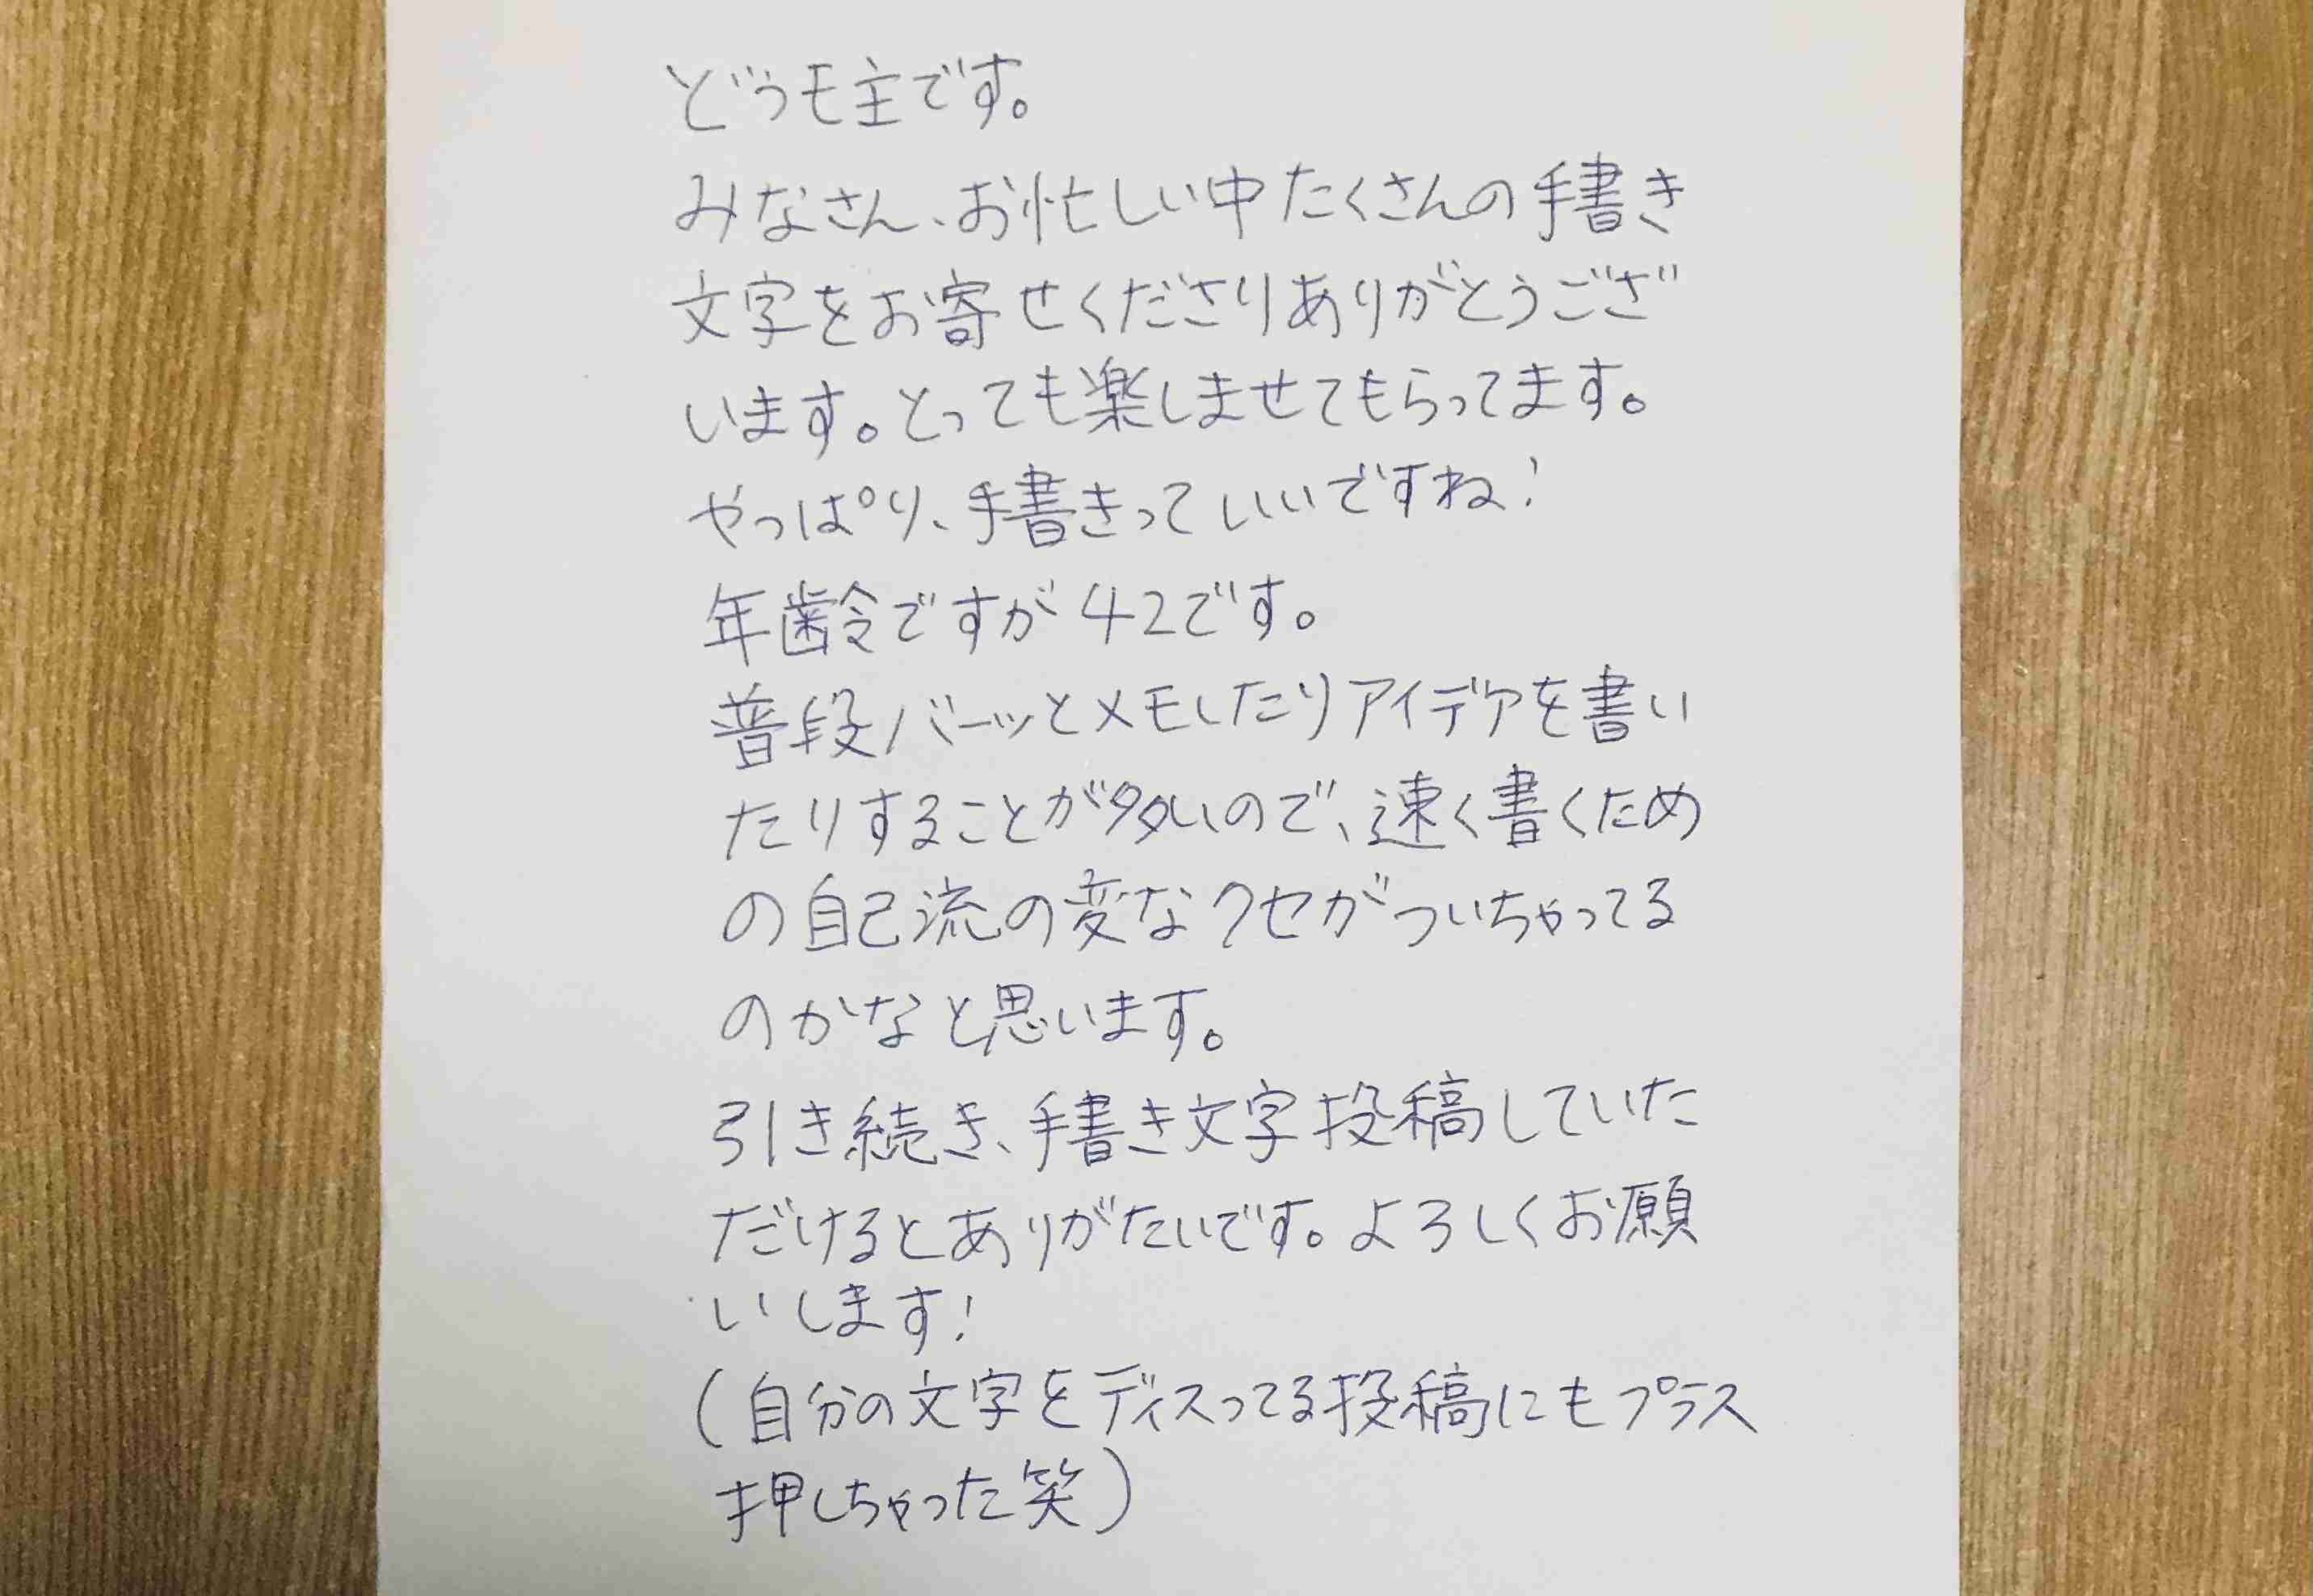 どうモ主です。
みなさん、お忙しい中たくさんの手書き
文字をお寄せくださりありがとうござ
います。とっても楽しませてもらってます。
やっぱり、手書きっていいですね!
年齢ですが42です。
普段バーッとメモしたりアイデアを書い
たりすることが多いので、速く書くため
の自己流の変なクセがついちゃってる
のかなと思います。
引き続き、手書き文字投稿していた
だけるとありがたいです。よろしくお願
いします!
(自分の文字をディスってる投稿にもプラス
押しちゃった笑)